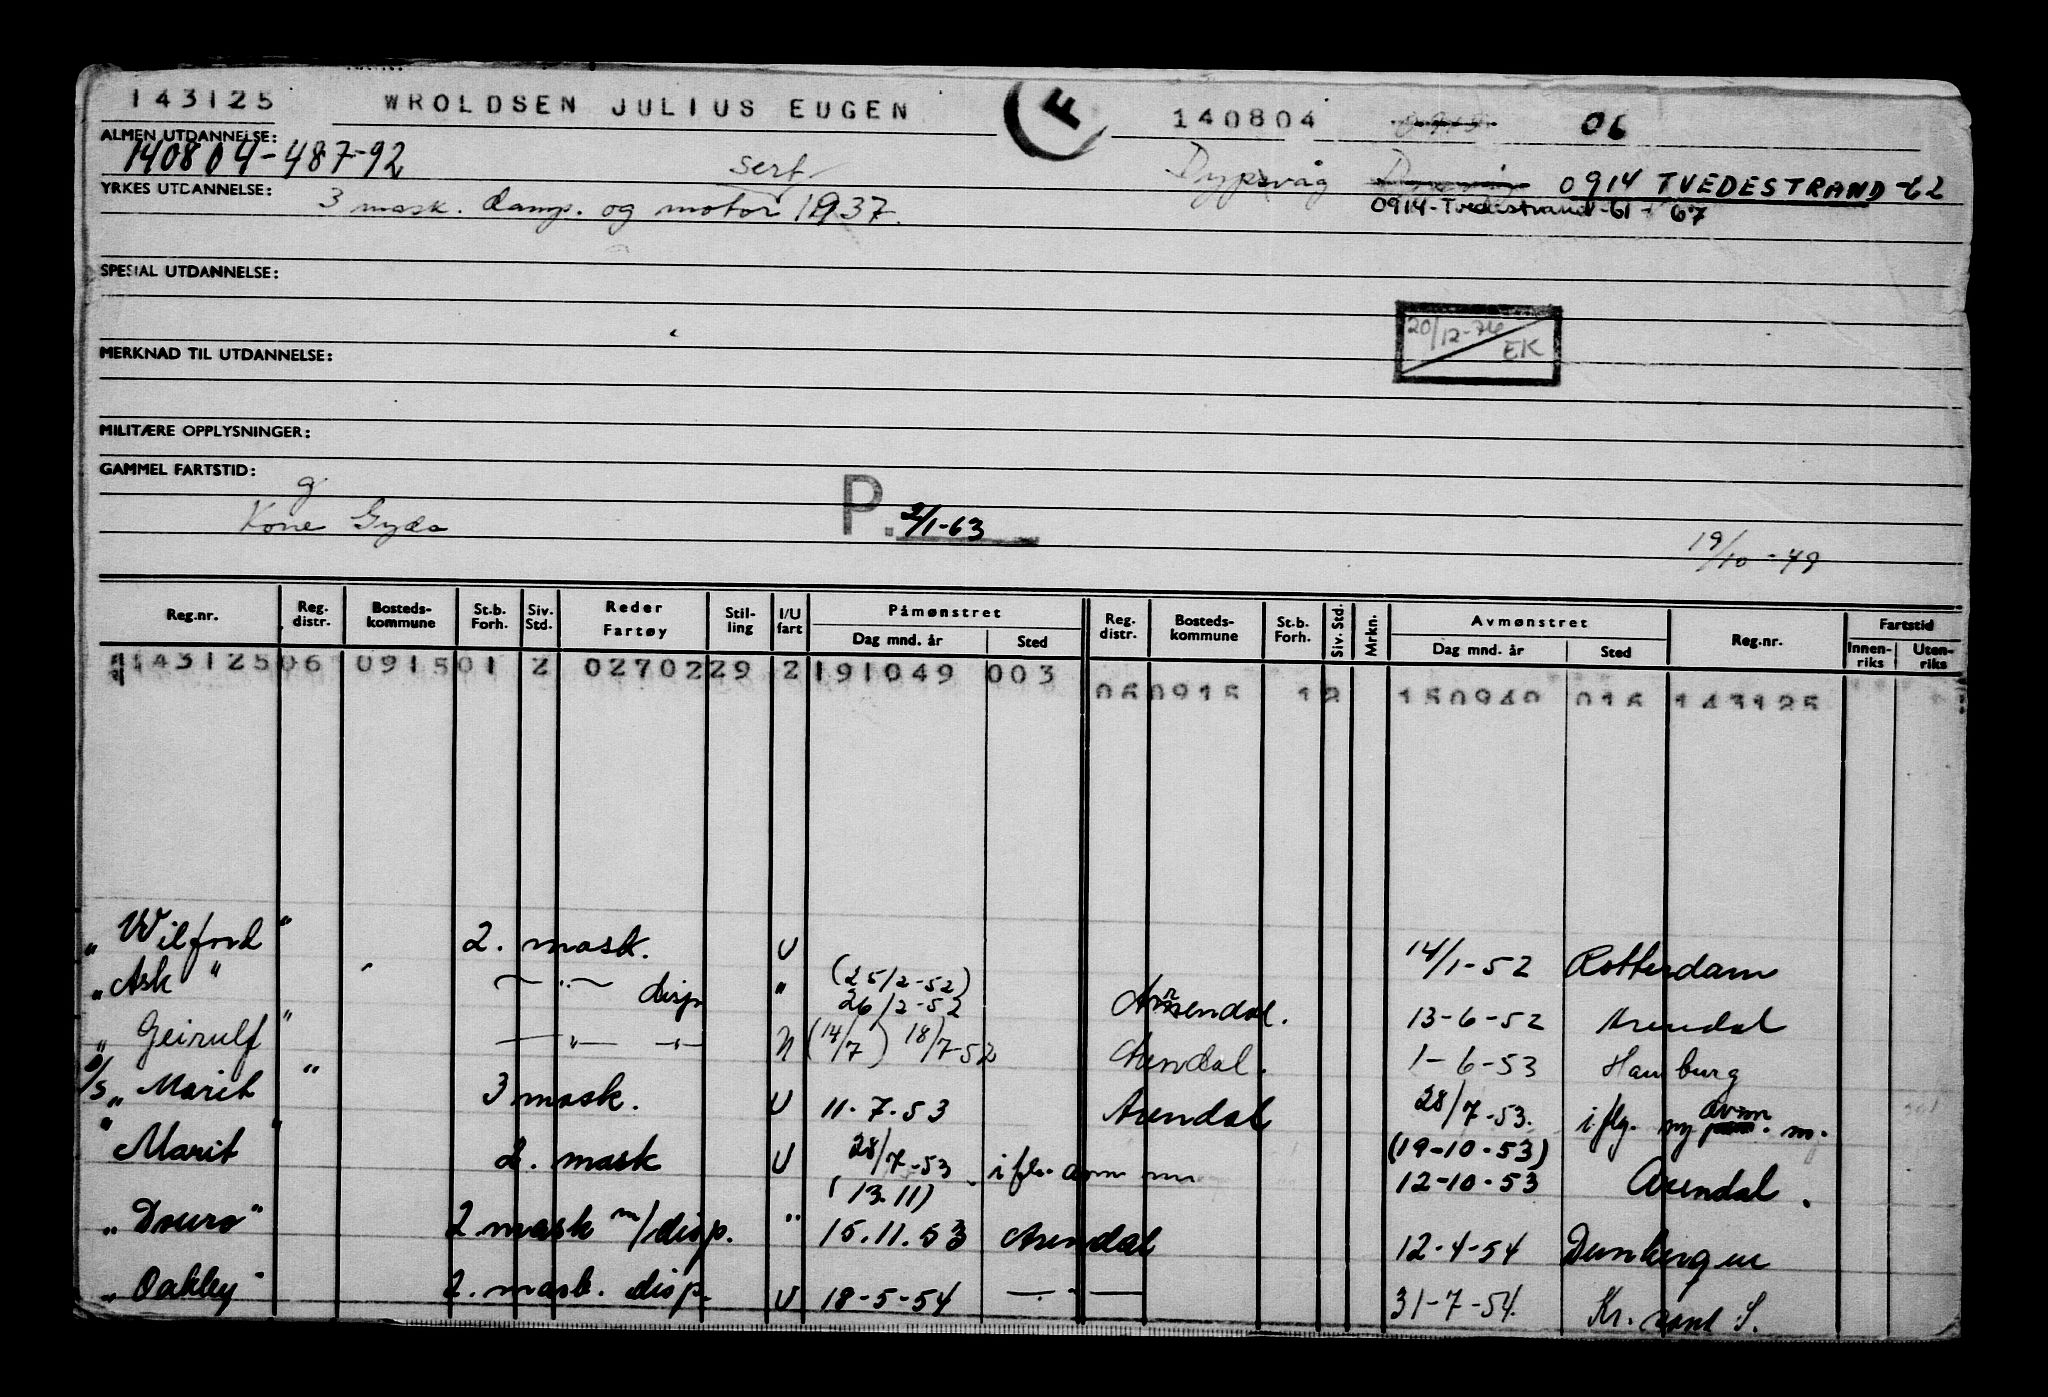 143125 WROLDSEN JULIUS EUGEN F 140804 06
ALMEN UTDANNELSE:
140804-487-92 sert. Dypvåg 0914 TVEDESTRAND-62
YRKES UTDANNELSE: 3 mask. damp. og motor 1937. 0914-Tvedestrand-61-67
SPESIAL UTDANNELSE:
20/12-76 EK
MERKNAD TIL UTDANNELSE:
MILITÆRE OPPLYSNINGER:
GAMMEL FARTSTID:
g
Kone Gyda P. 2/1-63 19/10-49
Reg.nr. Reg. distr. Bosteds-kommune St.b. Forh. Siv. Std. Reder Fartøy Stil-ling I/U fart Påmønstret Dag mnd. år Sted Reg. distr. Bosteds-kommune St.b. Forh. Siv. Std. Mrkn. Avmønstret Dag mnd. år Sted Reg.nr. Fartstid Innen-riks Uten-riks
143125 06 0915 01 2 02702 29 2 191049 003
06 0915 12 150940 016 143125
"Wilford" 2. mask. U 14/1-52 Rotterdam
"Ask" — " — disp " (25/2-52)
26/2-52 Arendal. 13-6-52 Arendal
"Geirulf" — " — " — N (14/7) 18/7-52 Arendal. 1-6-53 Hamburg
D/S "Marit" 3 mask. U 11.7.53 Arendal 28/7-53. i flg. ny avm. m.
"Marit" 2. mask U 28/7-53 i flg. (19-10-53)
12-10-53 Arendal.
(13.11)
"Douro" 2 mask m/disp. " 15.11.53 Arendal 12-4-54
"Oakley" 2. mask. disp. U 18-5-54 — " — 31-7-54. Kr. sand S.